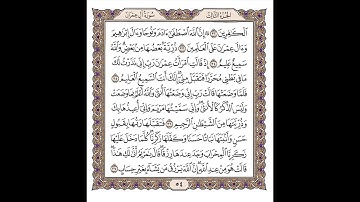 سُورَةُ آلِ عِمْرَانَ الجُزْءُ الثَّالِثُ
ٱلْكَٰفِرِينَ ٣٢ إِنَّ ٱللَّهَ ٱصْطَفَىٰٓ ءَادَمَ وَنُوحًا وَءَالَ إِبْرَٰهِيمَ
وَءَالَ عِمْرَٰنَ عَلَى ٱلْعَٰلَمِينَ ٣٣ ذُرِّيَّةًۢ بَعْضُهَا مِنۢ بَعْضٍۗ وَٱللَّهُ
سَمِيعٌ عَلِيمٌ ٣٤ إِذْ قَالَتِ ٱمْرَأَتُ عِمْرَٰنَ رَبِّ إِنِّي نَذَرْتُ لَكَ
مَا فِي بَطْنِي مُحَرَّرًا فَتَقَبَّلْ مِنِّيٓۖ إِنَّكَ أَنتَ ٱلسَّمِيعُ ٱلْعَلِيمُ ٣٥
فَلَمَّا وَضَعَتْهَا قَالَتْ رَبِّ إِنِّي وَضَعْتُهَآ أُنثَىٰ وَٱللَّهُ أَعْلَمُ بِمَا وَضَعَتْ
وَلَيْسَ ٱلذَّكَرُ كَٱلْأُنثَىٰۖ وَإِنِّي سَمَّيْتُهَا مَرْيَمَ وَإِنِّيٓ أُعِيذُهَا بِكَ
وَذُرِّيَّتَهَا مِنَ ٱلشَّيْطَٰنِ ٱلرَّجِيمِ ٣٦ فَتَقَبَّلَهَا رَبُّهَا بِقَبُولٍ
حَسَنٍ وَأَنۢبَتَهَا نَبَاتًا حَسَنًا وَكَفَّلَهَا زَكَرِيَّاۖ كُلَّمَا دَخَلَ عَلَيْهَا
زَكَرِيَّا ٱلْمِحْرَابَ وَجَدَ عِندَهَا رِزْقًاۖ قَالَ يَٰمَرْيَمُ أَنَّىٰ لَكِ هَٰذَاۖ
قَالَتْ هُوَ مِنْ عِندِ ٱللَّهِۖ إِنَّ ٱللَّهَ يَرْزُقُ مَن يَشَآءُ بِغَيْرِ حِسَابٍ ٣٧
٥٤